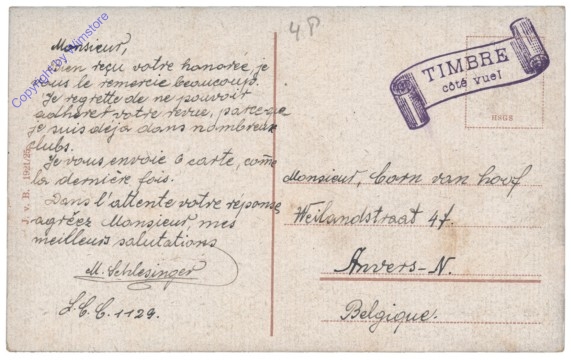 4 P
Monsieur,
Bien reçu votre honorée, je
vous le remercie beaucoup.
Je regrette de ne pouvoir
adhérer votre revue, parceque
je suis déja dans nombreux
clubs.
Je vous envoie 6 carte, come
la dernière fois.
Dans l'attente votre réponse
agréez Monsieur, mes
meilleurs salutations
M. Schlesinger
L.C.C. 1129.
TIMBRE
côté vue!
Monsieur, Corn van hoof
Weilandstraat 47.
Anvers-N.
Belgique.
J. v. B. 1921/26
Copyright by filmstore